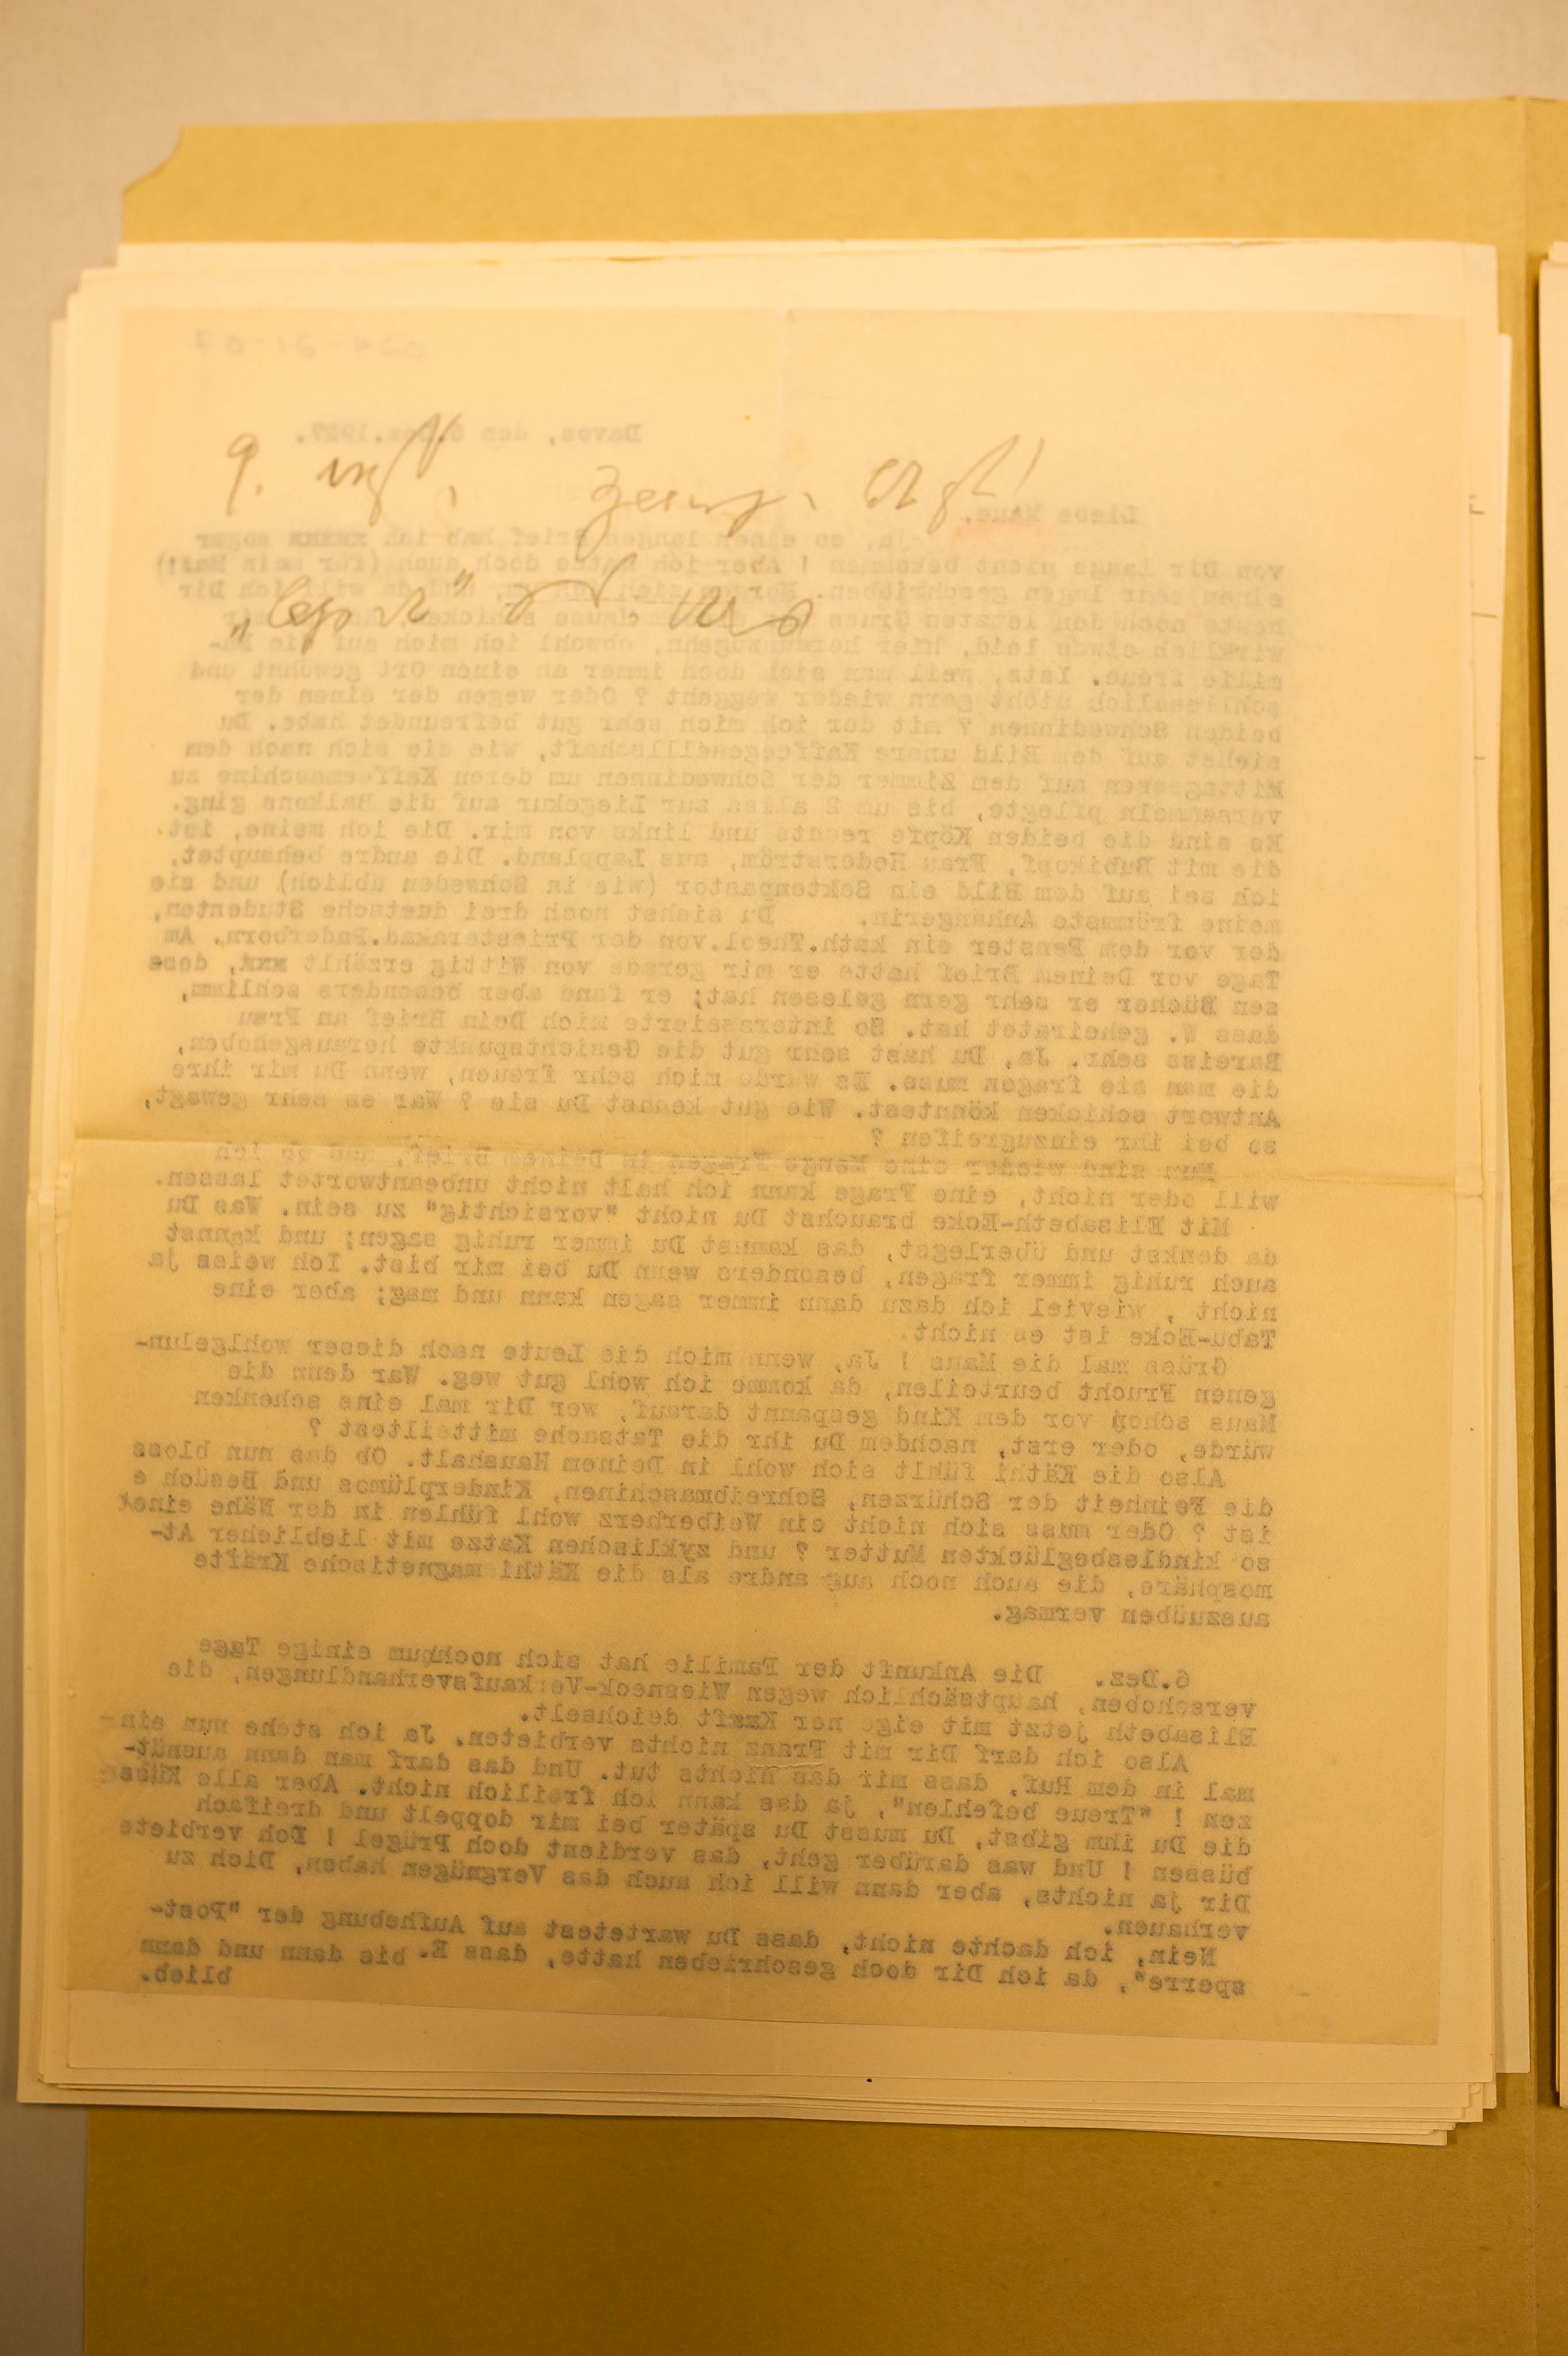 Davos, den
Liebe Maus,
ja, so einen langen Brief hab ich sogar
von Dir lange nicht bekommen ! Aber ich hatte doch auch (für mein Mas!)
einen sehr legen geschrieben. Morgen und da will ich Dir
heute noch den letzten Gruss
wirklich etwas leid, hier herauszugehn, obwohl ich mich auf die Fa-
milie freue. Ists, weil man sich doch immer an einen Ort gewöhnt und
schliesslich nicht gern wieder weggeht ? Oder wegen der einen der
beiden Schwedinnen ? mit der ich mich sehr gut befreundet habe. Du
siehst auf dem Bild unsre Kaffeegesellschaft, wie sie sich nach dem
Mittagessen auf dem Zimmer der Schwedinnen um deren Kaffeemaschine zu
versammeln pflegte, bis um 2 alles zur Liegekur auf die Balkons ging.
Es sind die beiden Köpfe rechts und links von mir. Die ich meine, ist
die mit Bubikopf, Frau Hederström, aus Lappland. Die andre behauptet,
ich sei auf dem Bild ein Sektenpastor (wie in Schweden üblich) und sie
meine frömmste Anhängerin. Du siehst noch drei deutsche Studenten,
der vor dem Fenster ein kath.Theol.von der Priesterakad.Paderborn. Am
Tage vor Deinem Brief hatte er mir gerade von Wittig erzählt xxx, dess
sen Bücher er sehr gern gelesen hat; er fand aber besonders schlimm,
dass W. geheiratet hat. So interessierte mich Dein Brief an Frau
Bareiss sehr. Ja, Du hast sehr gut die Gesichtspunkte herausgehoben,
die man sie fragen muss. Es würde mich sehr freuen, wenn Du mir ihre
Antwort schicken könntest. Wie gut kennst Du sie ? War es sehr gewagt,
so bei ihr einzugreifen ?
Nun sind wieder eine Menge Fragen in Deinem Brief, und ob ich
will oder nicht, eine Frage kann ich halt nicht unbeantwortet lassen.
Mit Elisabeth-Ecke brauchst Du nicht "vorsichtig" zu sein. Was Du
da denkst und überlegst, das kannst Du immer ruhig sagen; und kannst
auch ruhig immer fragen, besonders wenn Du bei mir bist. Ich weiss ja
nicht , wieviel ich dazu dann immer sagen kann und mag; aber eine
Tabu-Ecke ist es nicht.
Grüss mal die Maus ! Ja, wenn mich die Leute nach dieser wohlgelun-
genen Frucht beurteilen, da komme ich wohl gut weg. War denn die
Maus schon vor dem Kind gespannt darauf, wer Dir mal eins schenken
würde, oder erst, nachdem Du ihr die Tatsache mitteiltest ?
Also die Käthi fühlt sich wohl in Deinem Haushalt. Ob das nun bloss
die Feinheit der Schürzen, Schreibmaschinen, Kinderplümos und Besüch e
ist ? Oder muss sich nicht ein Weiberherz wohl fühlen in der Nähe einer
so kindlesbeglückten Mutter ? und zyklischen Katze mit lieblicher At-
mosphäre, die auch noch aug andre als die Käthi magnetische Kräfte
auszuüben vermag.
6.Dez. Die Ankunft der Familie hat sich noch um einige Tage
verschoben, hauptsächlich wegen Wiesneck-Verkaufsverhandlungen, die
Elisabeth jetzt mit eige ner Kraft deichselt.
Also ich darf Dir mit Franz nichts verbieten. Ja ich stehe nun ein-
mal in dem Ruf, dass mir das nichts tut. Und das darf man dann ausnüt-
zen ! "Treue befehlen", ja das kann ich freilich nicht. Aber alle Küsse
die Du ihm gibst, Du musst Du später bei mir doppelt und dreifach
büssen ! Und was darüber geht, das verdient doch Prügel ! Ich verbiete
Dir ja nichts, aber dann will ich auch das Vergnügen haben, Dich zu
verhauen.
Nein, ich dachte nicht, dass Du wartetest auf Aufhebung der "Post-
sperre", da ich Dir doch geschrieben hatte, dass E. bis dann und dann
blieb.